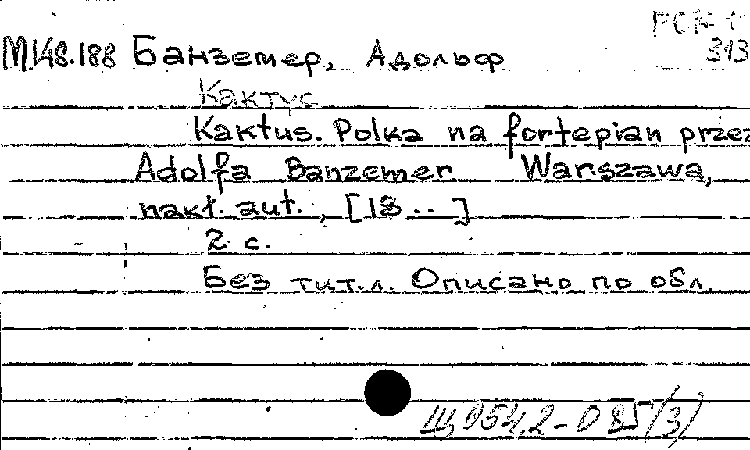 М148.188 Банземер, Адольф
313
Кактус
Kaktus. Polka na fortepian przez
Adolfa Banzemer Warszawa,
nakł. aut., [18..]
2 с.
Без тит.л. Описано по обл.
Щ954.2-085(3)